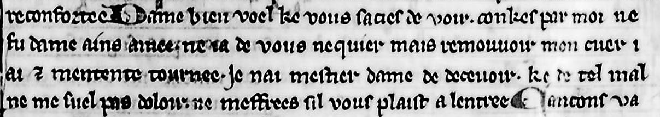 reconfortee Dame bien voel ke vous sacies de voir. conkes par moi ne
fu dame ains amee ne ia de vous ne quier mais remouuoir mon cuer i
ai ⁊ mentente tournee. Je nai mestier dame de deceuoir. ke de tel mal
ne me suel pas doloir. ne meffrees sil vous plaist a lentree Cancons va